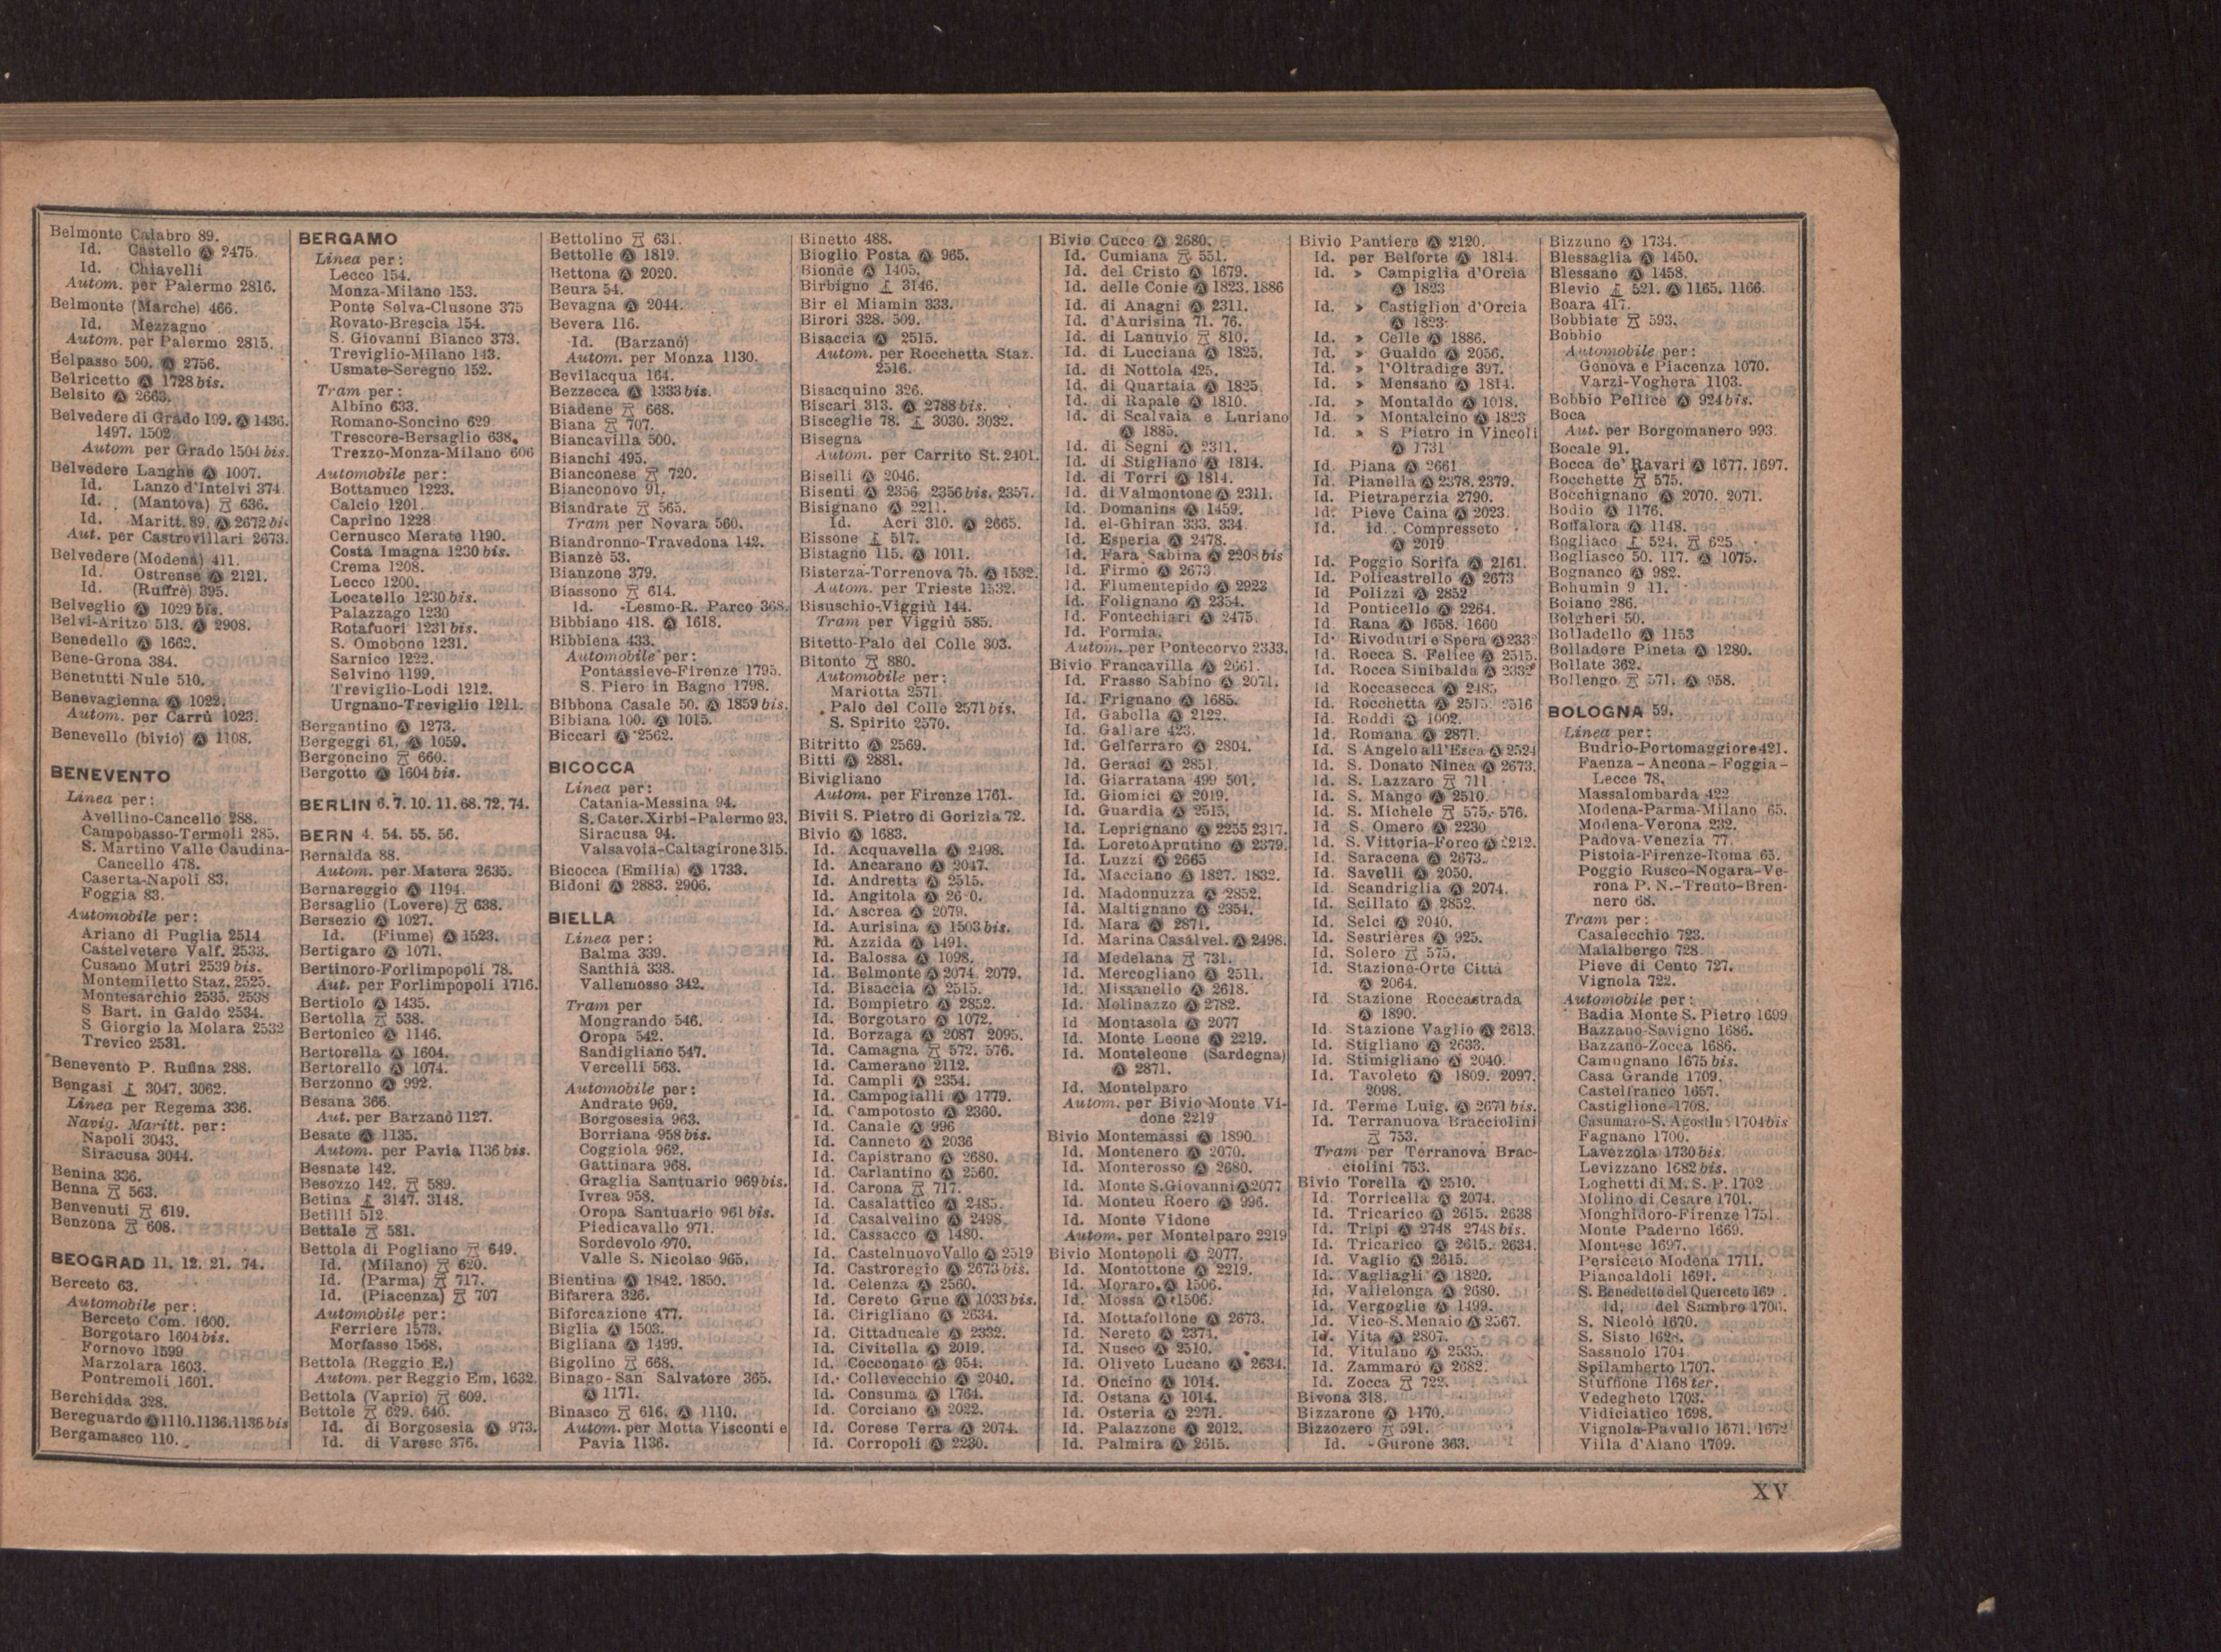 Belmonte Calabro 89.
Id. Castello Ⓐ 2475.
Id. Chiavelli
Autom. per Palermo 2816.
Belmonte (Marche) 466.
Id. Mezzagno
Autom. per Palermo 2815.
Belpasso 500. Ⓐ 2756.
Belricetto Ⓐ 1728 bis.
Belsito Ⓐ 2663.
Belvedere di Grado 199. Ⓐ 1436.
1497. 1502
Autom per Grado 1504 bis.
Belvedere Langhe Ⓐ 1007.
Id. Lanzo d'Intelvi 374
Id. (Mantova) 636.
Id. Maritt. 89. Ⓐ 2672 bis
Aut. per Castrovillari 2673.
Belvedere (Modena) 411.
Id. Ostrense Ⓐ 2121.
Id. (Ruffrè) 395.
Belveglio Ⓐ 1029 bis.
Belvì-Aritzo 513. Ⓐ 2908.
Benedello Ⓐ 1662.
Bene-Grona 384.
Benetutti Nule 510.
Benevagienna Ⓐ 1022.
Autom. per Carrù 1023.
Benevello (bivio) Ⓐ 1108.
BENEVENTO
Linea per:
Avellino-Cancello 288.
Campobasso-Termoli 285.
S. Martino Valle Caudina-
Cancello 478.
Caserta-Napoli 83.
Foggia 83.
Automobile per:
Ariano di Puglia 2514
Castelvetere Valf. 2533.
Cusano Mutri 2539 bis.
Montemiletto Staz. 2525.
Montesarchio 2535. 2538
S Bart. in Galdo 2534.
S Giorgio la Molara 2532
Trevico 2531.
Benevento P. Rufina 288.
Bengasi 3047. 3062.
Linea per Regema 336.
Navig. Maritt. per:
Napoli 3043.
Siracusa 3044.
Benina 336.
Benna 563.
Benvenuti 619.
Benzona 608.
BEOGRAD 11. 12. 21. 74.
Berceto 63.
Automobile per:
Berceto Com. 1600.
Borgotaro 1604 bis.
Fornovo 1599
Marzolara 1603.
Pontremoli 1601.
Berchidda 328.
Bereguardo Ⓐ 1110.1136.1136 bis
Bergamasco 110.
BERGAMO
Linea per:
Lecco 154.
Monza-Milano 153.
Ponte Selva-Clusone 375
Rovato-Brescia 154.
S. Giovanni Bianco 373.
Treviglio-Milano 143.
Usmate-Seregno 152.
Tram per:
Albino 633.
Romano-Soncino 629
Trescore-Bersaglio 638.
Trezzo-Monza-Milano 606
Automobile per:
Bottanuco 1223.
Calcio 1201.
Caprino 1228
Cernusco Merate 1190.
Costa Imagna 1230 bis.
Crema 1208.
Lecco 1200.
Locatello 1230 bis.
Palazzago 1230
Rotafuori 1231 bis.
S. Omobono 1231.
Sarnico 1222.
Selvino 1199.
Treviglio-Lodi 1212.
Urgnano-Treviglio 1211.
Bergantino Ⓐ 1273.
Bergeggi 61. Ⓐ 1059.
Bergoncino 660.
Bergotto Ⓐ 1604 bis.
BERLIN 6. 7. 10. 11. 68. 72. 74.
BERN 4. 54. 55. 56.
Bernalda 88.
Autom. per Matera 2635.
Bernareggio Ⓐ 1194.
Bersaglio (Lovere) 638.
Bersezio Ⓐ 1027.
Id. (Fiume) Ⓐ 1523.
Bertigaro Ⓐ 1071.
Bertinoro-Forlimpopoli 78.
Aut. per Forlimpopoli 1716.
Bertiolo Ⓐ 1435.
Bertolla 538.
Bertonico Ⓐ 1146.
Bertorella Ⓐ 1604.
Bertorello Ⓐ 1074.
Berzonno Ⓐ 992.
Besana 366.
Aut. per Barzanò 1127.
Besate Ⓐ 1135.
Autom. per Pavia 1136 bis.
Besnate 142.
Besozzo 142. 589.
Betina 3147. 3148.
Betilli 512
Bettale 581.
Bettola di Pogliano 649.
Id. (Milano) 620.
Id. (Parma) 717.
Id. (Piacenza) 707
Automobile per:
Ferriere 1573.
Morfasso 1568.
Bettola (Reggio E.)
Autom. per Reggio Em. 1632.
Bettola (Vaprio) 609.
Bettole 629. 640.
Id. di Borgosesia Ⓐ 973.
Id. di Varese 376.
Bettolino 631.
Bettolle Ⓐ 1819.
Bettona Ⓐ 2020.
Beura 54.
Bevagna Ⓐ 2044.
Bevera 116.
Id. (Barzanò)
Autom. per Monza 1130.
Bevilacqua 164.
Bezzecca Ⓐ 1333 bis.
Biadene 668.
Biana 707.
Biancavilla 500.
Bianchi 495.
Bianconese 720.
Bianconovo 91.
Biandrate 565.
Tram per Novara 560.
Biandronno-Travedona 142.
Bianzè 53.
Bianzone 379.
Biassono 614.
Id. -Lesmo-R. Parco 368.
Bibbiano 418. Ⓐ 1618.
Bibbiena 433.
Automobile per:
Pontassieve-Firenze 1795.
S. Piero in Bagno 1798.
Bibbona Casale 50. Ⓐ 1859 bis.
Bibiana 100. Ⓐ 1015.
Biccari Ⓐ 2562.
BICOCCA
Linea per:
Catania-Messina 94.
S. Cater. Xirbi-Palermo 93.
Siracusa 94.
Valsavoia-Caltagirone 315.
Bicocca (Emilia) Ⓐ 1733.
Bidoni Ⓐ 2883. 2906.
BIELLA
Linea per:
Balma 339.
Santhià 338.
Vallemosso 342.
Tram per
Mongrando 546.
Oropa 542.
Sandigliano 547.
Vercelli 563.
Automobile per:
Andrate 969.
Borgosesia 963.
Borriana 958 bis.
Coggiola 962.
Gattinara 968.
Graglia Santuario 969 bis.
Ivrea 958.
Oropa Santuario 961 bis.
Piedicavallo 971.
Sordevolo 970.
Valle S. Nicolao 965.
Bientina Ⓐ 1842. 1850.
Bifarera 326.
Biforcazione 477.
Biglia Ⓐ 1503.
Bigliana Ⓐ 1499.
Bigolino 668.
Binago-San Salvatore 365.
Ⓐ 1171.
Binasco 616. Ⓐ 1110.
Autom. per Motta Visconti e
Pavia 1136.
Binetto 488.
Bioglio Posta Ⓐ 965.
Bionde Ⓐ 1405.
Birbigno 3146.
Bir el Miamin 333.
Birori 328. 509.
Bisaccia Ⓐ 2515.
Autom. per Rocchetta Staz.
2516.
Bisacquino 326.
Biscari 313. Ⓐ 2788 bis.
Bisceglie 78. 3030. 3032.
Bisegna
Autom. per Carrito St. 2401.
Biselli Ⓐ 2046.
Bisenti Ⓐ 2356 2356 bis. 2357.
Bisignano Ⓐ 2211.
Id. Acri 310. Ⓐ 2665.
Bissone 517.
Bistagno 115. Ⓐ 1011.
Bisterza-Torrenova 75. Ⓐ 1532.
Autom. per Trieste 1532.
Bisuschio-Viggiù 144.
Tram per Viggiù 585.
Bitetto-Palo del Colle 303.
Bitonto 880.
Automobile per:
Mariotta 2571
Palo del Colle 2571 bis.
S. Spirito 2570.
Bitritto Ⓐ 2569.
Bitti Ⓐ 2881.
Bivigliano
Autom. per Firenze 1761.
Bivii S. Pietro di Gorizia 72.
Bivio Ⓐ 1683.
Id. Acquavella Ⓐ 2498.
Id. Ancarano Ⓐ 2047.
Id. Andretta Ⓐ 2515.
Id. Angitola Ⓐ
Id. Ascrea Ⓐ 2079.
Id. Aurisina Ⓐ 1503 bis.
Id. Azzida Ⓐ 1491.
Id. Balossa Ⓐ 1098.
Id. Belmonte Ⓐ 2074. 2079.
Id. Bisaccia Ⓐ 2515.
Id. Bompietro Ⓐ 2852.
Id. Borgotaro Ⓐ 1072.
Id. Borzaga Ⓐ 2087 2095.
Id. Camagna 572. 576.
Id. Camerano 2112.
Id. Campli Ⓐ 2354.
Id. Campogialli Ⓐ 1779.
Id. Campotosto Ⓐ 2360.
Id. Canale Ⓐ 996
Id. Canneto Ⓐ 2036
Id. Capistrano Ⓐ 2680.
Id. Carlantino Ⓐ 2560.
Id. Carona 717.
Id. Casalattico Ⓐ 2485.
Id. Casalvelino Ⓐ 2498.
Id. Cassacco Ⓐ 1480.
Id. Castelnuovo Vallo Ⓐ 2519
Id. Castroregio Ⓐ 2673 bis.
Id. Celenza Ⓐ 2560.
Id. Cereto Grue Ⓐ 1033 bis.
Id. Cirigliano Ⓐ 2634.
Id. Cittaducale Ⓐ 2332.
Id. Civitella Ⓐ 2019.
Id. Cocconato Ⓐ 954.
Id. Collevecchio Ⓐ 2040.
Id. Consuma Ⓐ 1764.
Id. Corciano Ⓐ 2022.
Id. Corese Terra Ⓐ 2074.
Id. Corropoli Ⓐ 2230.
Bivio Cucco Ⓐ 2680.
Id. Cumiana 551.
Id. del Cristo Ⓐ 1679.
Id. delle Conie Ⓐ 1823. 1886
Id. di Anagni Ⓐ 2311.
Id. d'Aurisina 71. 76.
Id. di Lanuvio 810.
Id. di Lucciana Ⓐ 1825.
Id. di Nottola 425.
Id. di Quartaia Ⓐ 1825
Id. di Rapale Ⓐ 1810.
Id. di Scalvaia e Luriano
Ⓐ 1885.
Id. di Segni Ⓐ 2311.
Id. di Stigliano Ⓐ 1814.
Id. di Torri Ⓐ 1814.
Id. di Valmontone Ⓐ 2311.
Id. Domanins Ⓐ 1459.
Id. el-Ghiran 333. 334
Id. Esperia Ⓐ 2478.
Id. Fara Sabina Ⓐ 2208 bis
Id. Firmo Ⓐ 2673
Id. Flumentepido Ⓐ 2923
Id. Folignano Ⓐ 2354.
Id. Fontechiari Ⓐ 2475.
Id. Formia.
Autom. per Pontecorvo 2333.
Bivio Francavilla Ⓐ 2661.
Id. Frasso Sabino Ⓐ 2071.
Id. Frignano Ⓐ 1685.
Id. Gabella Ⓐ 2122.
Id. Gallare 423.
Id. Gelferraro Ⓐ 2804.
Id. Geraci Ⓐ 2851.
Id. Giarratana 499 501.
Id. Giomici Ⓐ 2019.
Id. Guardia Ⓐ 2515.
Id. Leprignano Ⓐ 2255 2317.
Id. Loreto Aprutino Ⓐ 2379.
Id. Luzzi Ⓐ 2665
Id. Macciano Ⓐ 1827. 1832.
Id. Madonnuzza Ⓐ 2852.
Id. Maltignano Ⓐ 2354.
Id. Mara Ⓐ 2871.
Id. Marina Casalvel. Ⓐ 2498.
Id Medelana 731.
Id. Mercogliano Ⓐ 2511.
Id. Missanello Ⓐ 2618.
Id. Molinazzo Ⓐ 2782.
Id Montasola Ⓐ 2077
Id. Monte Leone Ⓐ 2219.
Id. Monteleone (Sardegna)
Ⓐ 2871.
Id. Montelparo
Autom. per Bivio Monte Vi-
done 2219
Bivio Montemassi Ⓐ 1890.
Id. Montenero Ⓐ 2070.
Id. Monterosso Ⓐ 2680.
Id. Monte S. Giovanni Ⓐ 2077
Id. Monteu Roero Ⓐ 996.
Id. Monte Vidone
Autom. per Montelparo 2219
Bivio Montopoli Ⓐ 2077.
Id. Montottone Ⓐ 2219.
Id. Moraro. Ⓐ 1506.
Id. Mossa Ⓐ 1506.
Id. Mottafollone Ⓐ 2673.
Id. Nereto Ⓐ 2374.
Id. Nusco Ⓐ 2510.
Id. Oliveto Lucano Ⓐ 2634.
Id. Oncino Ⓐ 1014.
Id. Ostana Ⓐ 1014.
Id. Osteria Ⓐ 2271.
Id. Palazzone Ⓐ 2012.
Id. Palmira Ⓐ 2615.
Bivio Pantiere Ⓐ 2120.
Id. per Belforte Ⓐ 1814.
Id. » Campiglia d'Orcia
Ⓐ 1823
Id. » Castiglion d'Orcia
Ⓐ 1823
Id. » Celle Ⓐ 1886.
Id. » Gualdo Ⓐ 2056.
Id. » l'Oltradige 397.
Id. » Mensano Ⓐ 1814.
Id. » Montaldo Ⓐ 1018.
Id. » Montalcino Ⓐ 1823
Id. » S Pietro in Vincoli
Ⓐ 1731
Id. Piana Ⓐ 2661
Id. Pianella Ⓐ 2378. 2379.
Id. Pietraperzia 2790.
Id. Pieve Caina Ⓐ 2023.
Id. id. Compresseto
Ⓐ 2019
Id. Poggio Sorifa Ⓐ 2161.
Id. Policastrello Ⓐ 2673
Id Polizzi Ⓐ 2852
Id Ponticello Ⓐ 2264.
Id. Rana Ⓐ 1658. 1660
Id. Rivodutri e Spera Ⓐ
Id. Rocca S. Felice Ⓐ 2515.
Id. Rocca Sinibalda Ⓐ 2332
Id Roccasecca Ⓐ 2485
Id. Rocchetta Ⓐ 2515. 2516
Id. Roddi Ⓐ 1002.
Id. Romana Ⓐ 2871.
Id. S Angelo all'Esca Ⓐ 2524
Id. S. Donato Ninea Ⓐ 2673.
Id. S. Lazzaro 711
Id. S. Mango Ⓐ 2510.
Id. S. Michele 575. 576.
Id S. Omero Ⓐ 2230
Id. S. Vittoria-Force Ⓐ 2212.
Id. Saracena Ⓐ 2673.
Id. Savelli Ⓐ 2050.
Id. Scandriglia Ⓐ 2074.
Id. Scillato Ⓐ 2852.
Id. Selci Ⓐ 2040.
Id. Sestrières Ⓐ 925.
Id. Solero 575.
Id. Stazione-Orte Città
Ⓐ 2064.
Id Stazione Roccastrada
Ⓐ 1890.
Id. Stazione Vaglio Ⓐ 2613.
Id. Stigliano Ⓐ 2633.
Id. Stimigliano Ⓐ 2040.
Id. Tavoleto Ⓐ 1809. 2097.
2098.
Id. Terme Luig. Ⓐ 2671 bis.
Id. Terranuova Bracciolini
753.
Tram per Terranova Brac-
ciolini 753.
Bivio Torella Ⓐ 2510.
Id. Torricella Ⓐ 2074.
Id. Tricarico Ⓐ 2615. 2638
Id. Tripi Ⓐ 2748 2748 bis.
Id. Tricarico Ⓐ 2615. 2634.
Id. Vaglio Ⓐ 2615.
Id. Vagliagli Ⓐ 1820.
Id. Vallelonga Ⓐ 2680.
Id. Vergoglie Ⓐ 1499.
Id. Vico-S. Menaio Ⓐ 2567.
Id. Vita Ⓐ 2807.
Id. Vitulano Ⓐ 2535.
Id. Zammarò Ⓐ 2682.
Id. Zocca 722.
Bivona 318.
Bizzarone Ⓐ 1170.
Bizzozero 591.
Id. -Gurone 363.
Bizzuno Ⓐ 1734.
Blessaglia Ⓐ 1450.
Blessano Ⓐ 1458.
Blevio 521. Ⓐ 1165. 1166.
Boara 417.
Bobbiate 593.
Bobbio
Automobile per:
Genova e Piacenza 1070.
Varzi-Voghera 1103.
Bobbio Pellice Ⓐ 924 bis.
Boca
Aut. per Borgomanero 993.
Bocale 91.
Bocca de' Ravari Ⓐ 1677. 1697.
Bocchette 575.
Bocchignano Ⓐ 2070. 2071.
Bodio Ⓐ 1176.
Boffalora Ⓐ 1148.
Bogliaco 524. 625
Bogliasco 50. 117. Ⓐ 1075.
Bognanco Ⓐ 982.
Bohumin 9 11.
Boiano 286.
Bolgheri 50.
Bolladello Ⓐ 1153
Bolladore Pineta Ⓐ 1280.
Bollate 362.
Bollengo 571. Ⓐ 958.
BOLOGNA 59.
Linea per:
Budrio-Portomaggiore 421.
Faenza-Ancona-Foggia-
Lecce 78.
Massalombarda 422
Modena-Parma-Milano 65.
Modena-Verona 232.
Padova-Venezia 77.
Pistoia-Firenze-Roma 65.
Poggio Rusco-Nogara-Ve-
rona P. N.-Trento-Bren-
nero 68.
Tram per:
Casalecchio 723.
Malalbergo 728
Pieve di Cento 727.
Vignola 722.
Automobile per:
Badia Monte S. Pietro 1699
Bazzano-Savigno 1686.
Bazzano-Zocca 1686.
Camugnano 1675 bis.
Casa Grande 1709.
Castelfranco 1657.
Castiglione 1708.
Casumaro-S. Agostin: 1704 bis
Fagnano 1700.
Lavezzola 1730 bis.
Levizzano 1682 bis.
Loghetti di M. S. P. 1702
Molino di Cesare 1701.
Monghidoro-Firenze 1751.
Monte Paderno 1669.
Montese 1697.
Persiceto Modena 1711.
Piancaldoli 1691.
S. Benedetto del Querceto
Id. del Sambro
S. Nicolò 1670.
S. Sisto 1628.
Sassuolo 1704
Spilamberto 1707.
Stuffione 1168 ter.
Vedegheto 1703.
Vidiciatico 1698.
Vignola-Pavullo 1671. 1672
Villa d'Aiano 1709.
XV